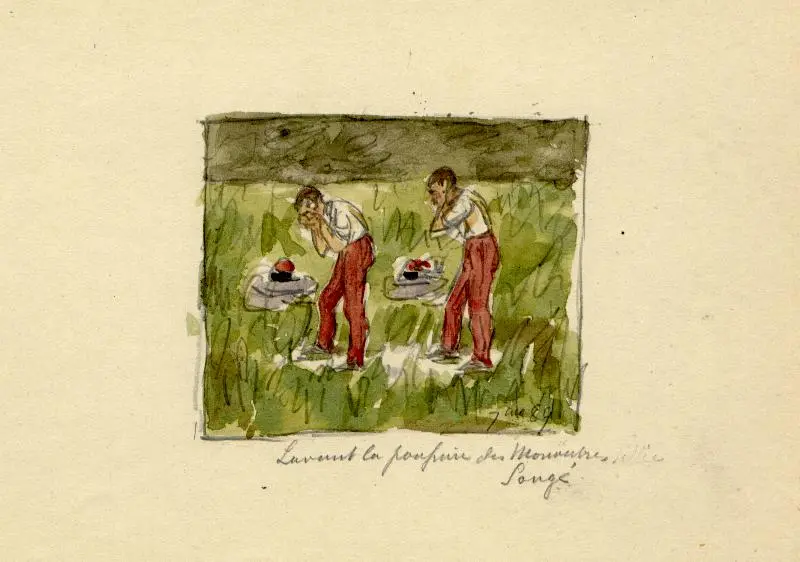 7bre 89
Lavant la poussière des Manoeuvres
Songé